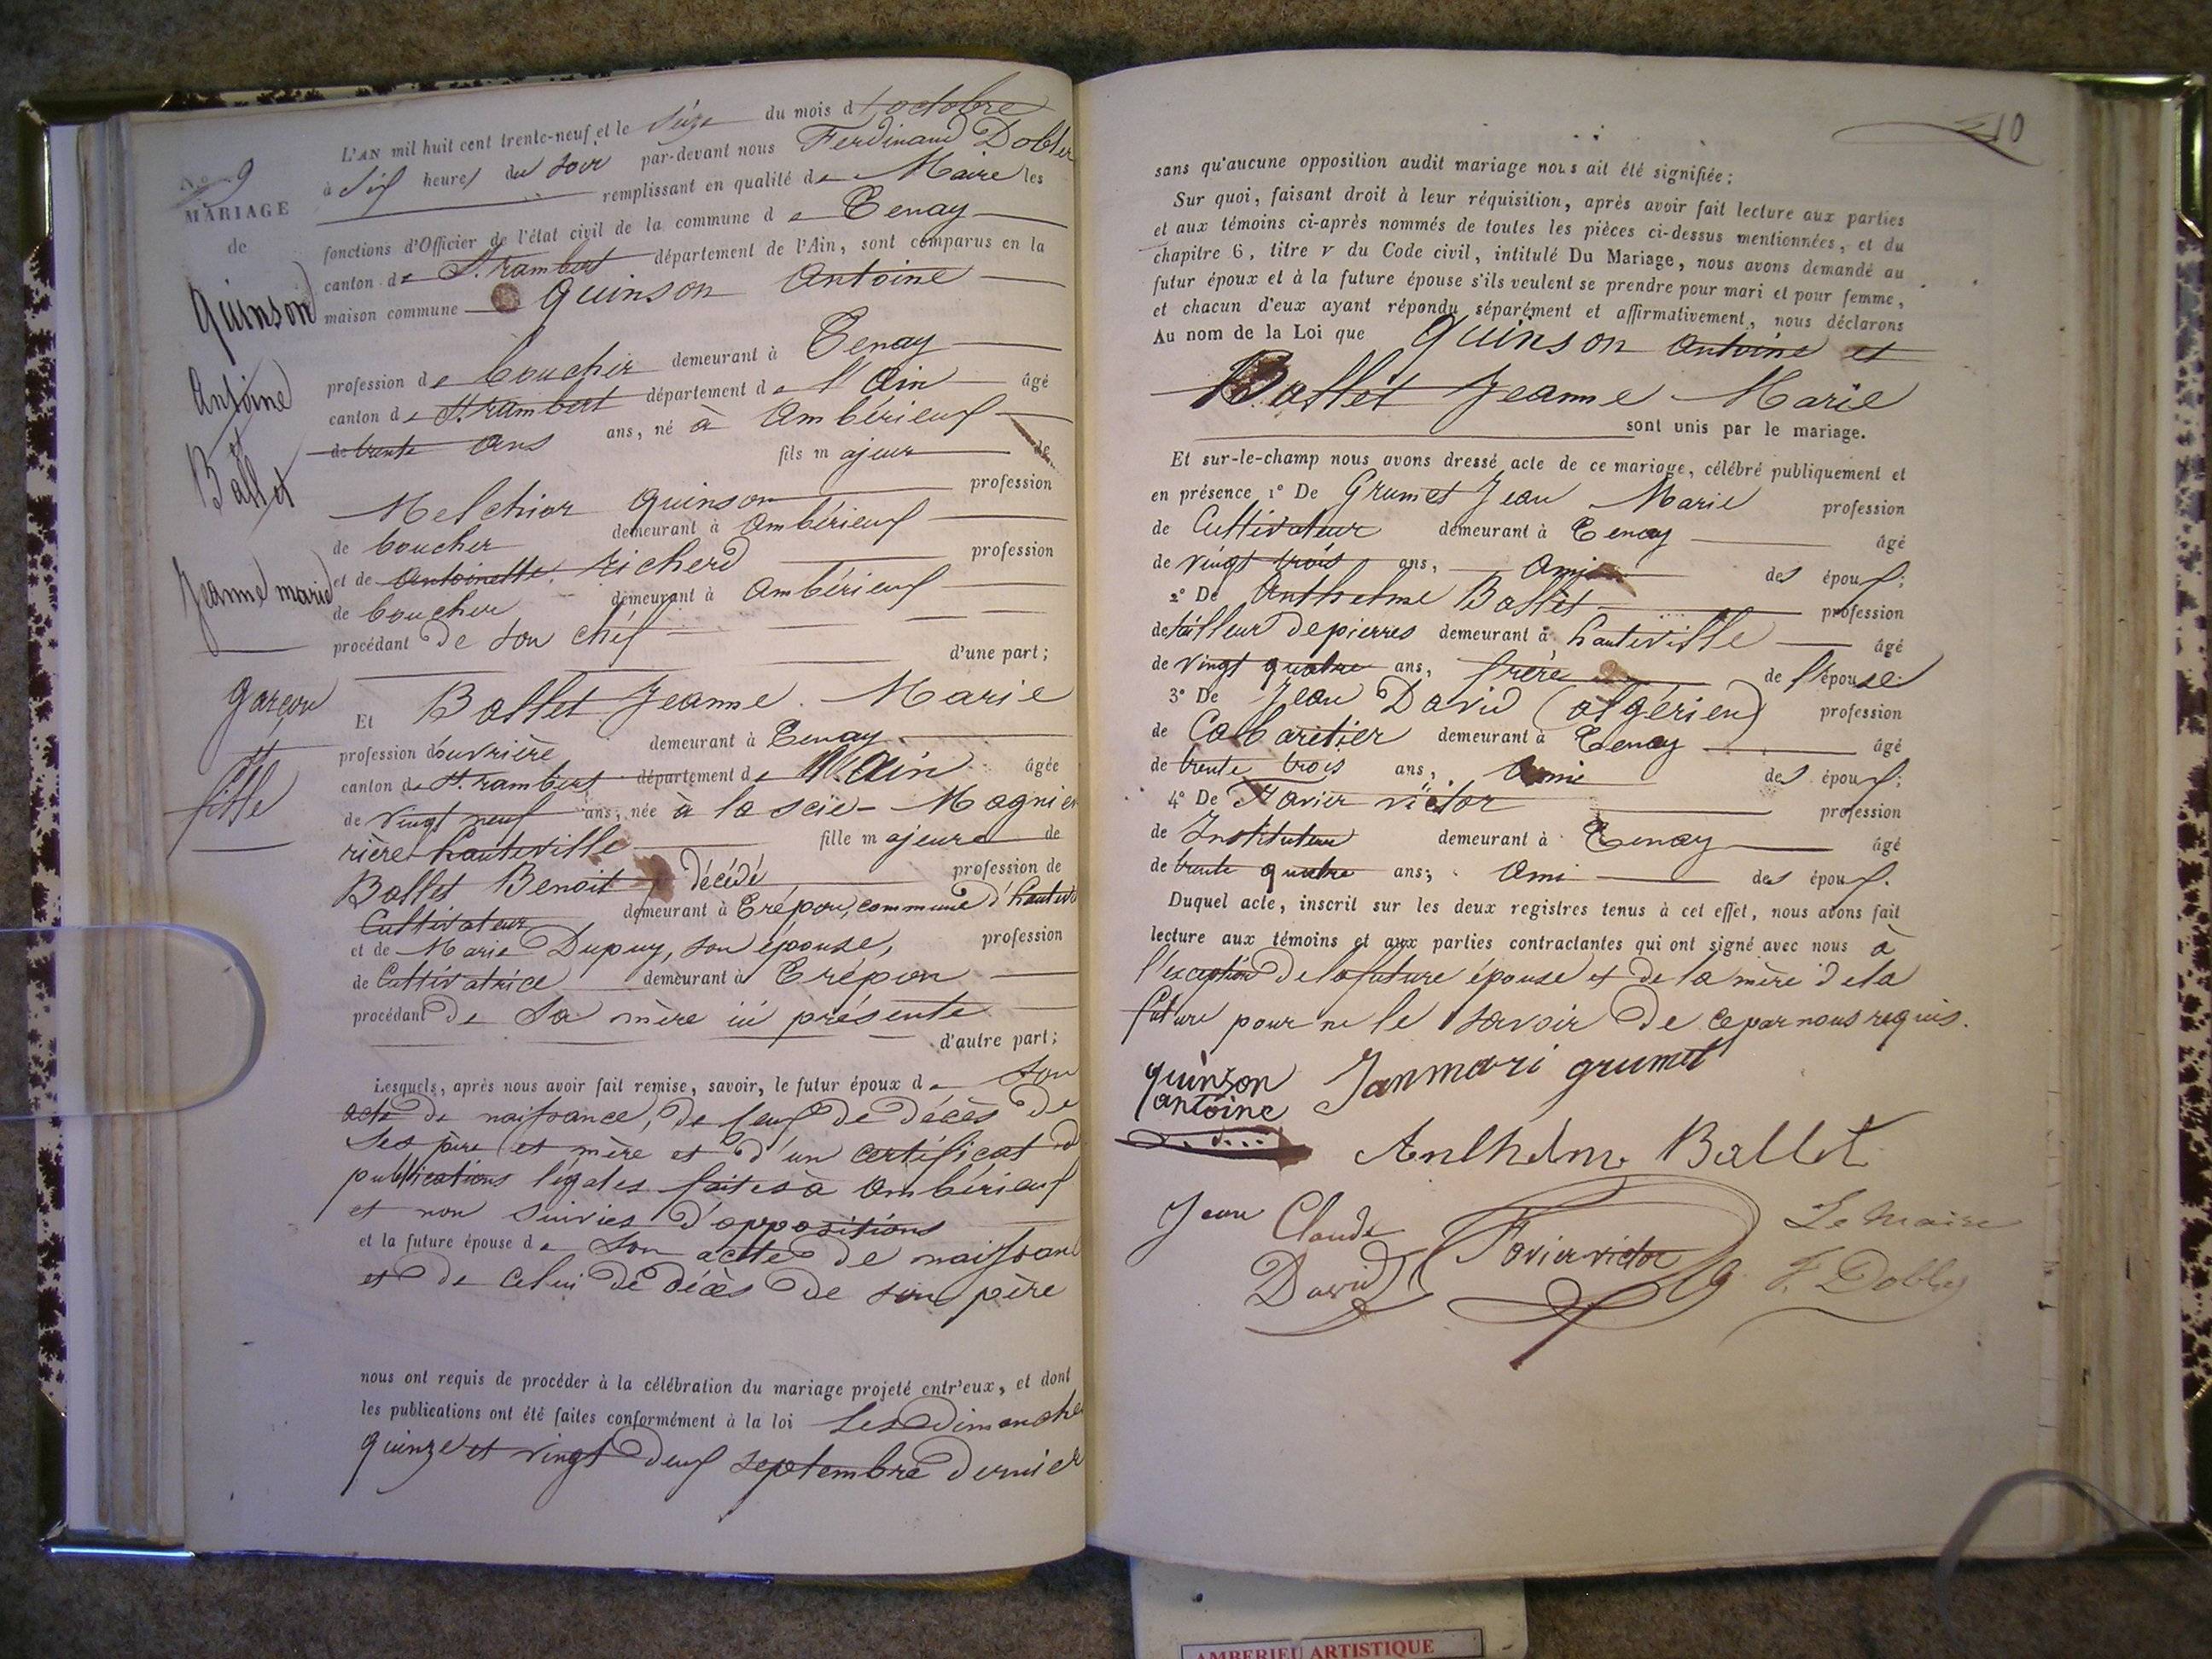 N.º 9
MARIAGE
de
Quinson
Antoine
et
Ballet
Jeanne marie
garçon
et
fille
L'AN mil huit cent trente-neuf et le Seize du mois d'octobre
à Six heures du soir par-devant nous Ferdinand Dobler
remplissant en qualité de Maire les
fonctions d'Officier de l'état civil de la commune de Tenay
canton de St. rambert département de l'Ain, sont comparus en la
maison commune Quinson Antoine
profession de boucher demeurant à Tenay
canton de St. rambert département de l'Ain âgé
de trente ans ans, né à Ambérieux
fils majeur de
Melchior Quinson profession
de boucher demeurant à Ambérieux
et de Antoinette richerd profession
de boucher demeurant à Ambérieux
procédant de son chéf
d'une part;
Et Ballet Jeanne Marie
profession d'ouvrière demeurant à Tenay
canton de St. rambert département de l'Ain âgée
de vingt neuf ans, née à la scie - Magnien
rière hauteville fille majeure de
Ballet Benoit décédé profession de
Cultivateur demeurant à Trépon, commune d'hautev
et de Marie Dupuy, son épouse, profession
de Cultivatrice demeurant à Trépon
procédant de Sa mère ici présente
d'autre part;
Lesquels, après nous avoir fait remise, savoir, le futur époux de son
acte de naissance, de ceux de décès de
Ses père et mère et d'un certificat d
publications légales faites à Ambérieux
et non suivies d'oppositions
et la future épouse de Son acte de naissan
et de Celui de décès de son père
nous ont requis de procéder à la célébration du mariage projeté entr'eux, et dont
les publications ont été faites conformément à la loi Les Dimanche
quinze et vingt deux septembre dernier
10
sans qu'aucune opposition audit mariage nous ait été signifiée;
Sur quoi, faisant droit à leur réquisition, après avoir fait lecture aux parties
et aux témoins ci-après nommés de toutes les pièces ci-dessus mentionnées, et du
chapitre 6, titre V du Code civil, intitulé Du Mariage, nous avons demandé au
futur époux et à la future épouse s'ils veulent se prendre pour mari et pour femme,
et chacun d'eux ayant répondu séparément et affirmativement, nous déclarons
Au nom de la Loi que Quinson Antoine et
Ballet Jeanne Marie
sont unis par le mariage.
Et sur-le-champ nous avons dressé acte de ce mariage, célébré publiquement et
en présence 1º De Grumet Jean Marie profession
de Cultivateur demeurant à Tenay âgé
de vingt trois ans, Ami des époux;
2º De Anthelme Ballet profession
de tailleur de pierres demeurant à hauteville âgé
de vingt quatre ans, frère de l'épouse
3º De Jean David (algérien) profession
de Cabaretier demeurant à Tenay âgé
de trente trois ans, Ami des époux;
4º De Favier victor profession
de Instituteur demeurant à Tenay âgé
de trente quatre ans; Ami des époux.
Duquel acte, inscrit sur les deux registres tenus à cet effet, nous avons fait
lecture aux témoins et aux parties contractantes qui ont signé avec nous à
l'exception de la future épouse et de la mère de la
future pour ne le savoir de ce par nous requis.
quinson Janmari grumet
antoine
Anthelme Ballet
Jean Claude
David
Favier victor
Le Maire
F. Dobler
AMBERIEU ARTISTIQUE